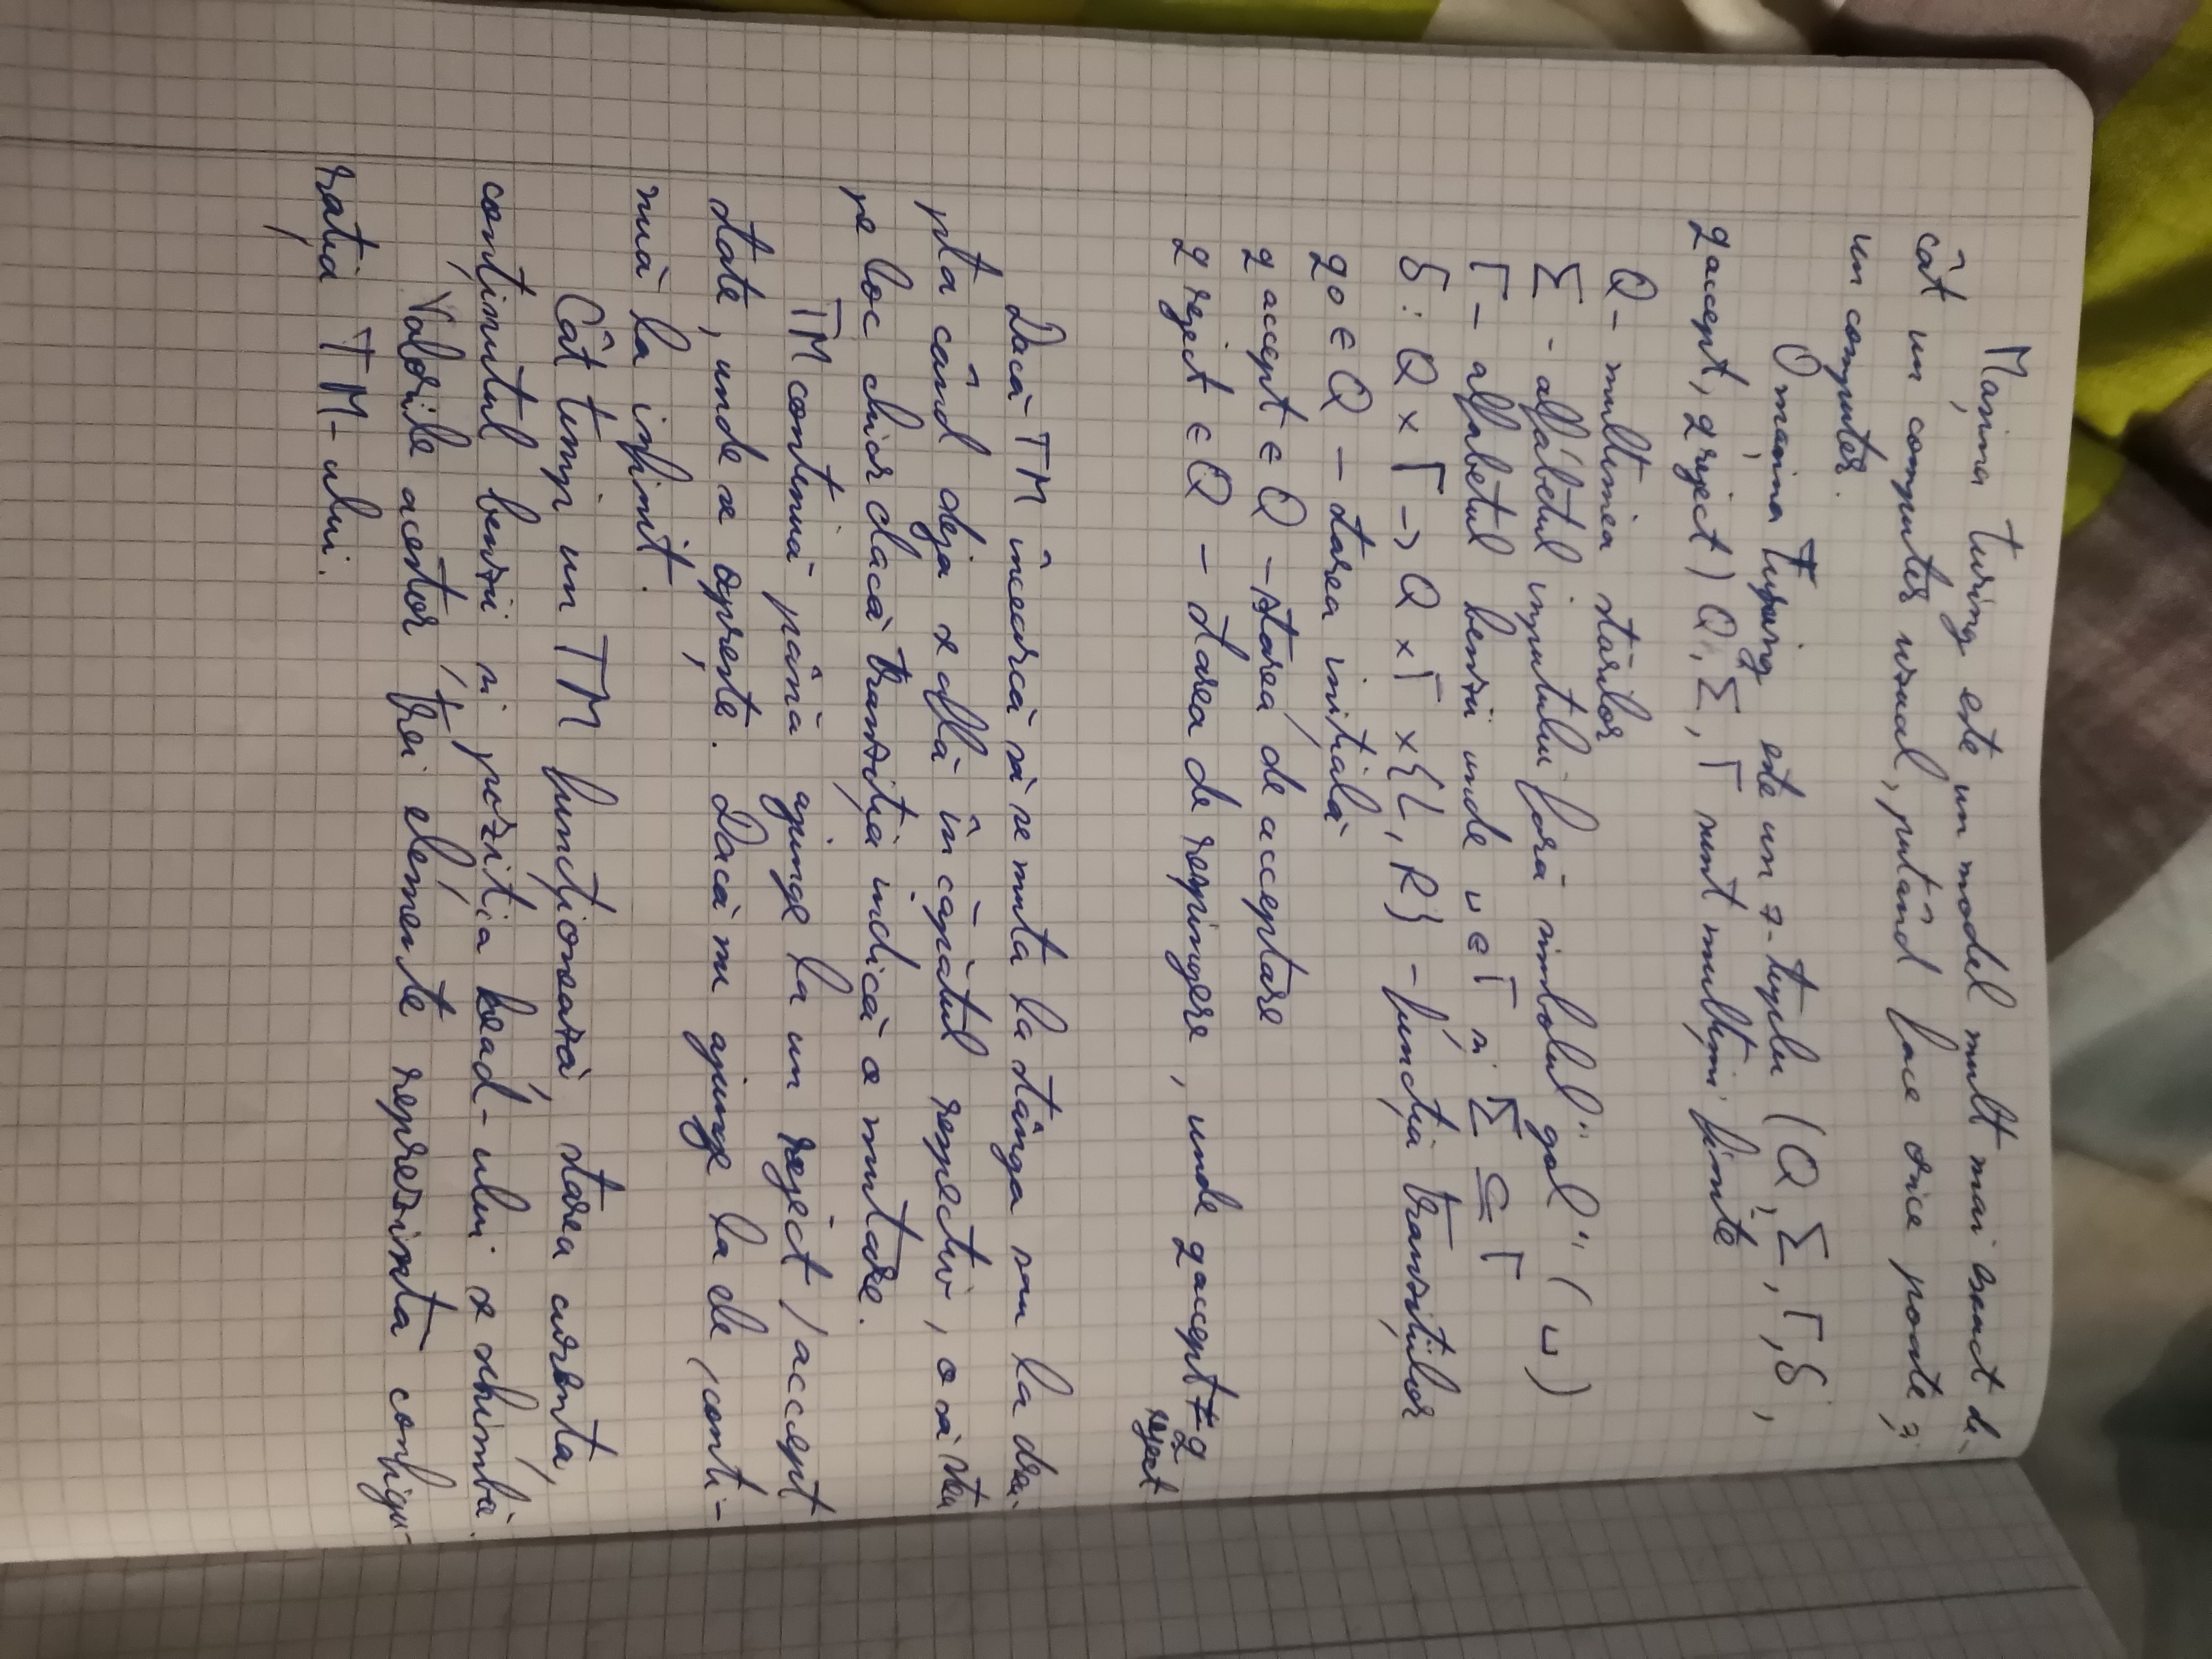 Mașina Turing este un model mult mai exact de-
cât un computer uzual, putând face orice poate și
un computer.
O mașina Turing este un 7-tuplu (Q, Σ, Γ, δ,
q accept, q reject) Q, Σ, Γ sunt mulțimi finite
Q – multimea stărilor
Σ - alfabetul inputului fară simbolul "gol" (⊔)
Γ – alfabetul benzii unde ⊔ ∈ Γ și Σ ⊆ Γ
δ: Q × Γ -> Q × Γ × {L, R} – funcția tranzițiilor
q0 ∈ Q – starea inițială
q accept ∈ Q – starea de acceptare
q reject ∈ Q – starea de respingere, unde q accept ≠ q
reject
Dacă TM încearcă să se muta la stânga sau la drea-
pta când deja se află în căpătul respectiv, o să stea
pe loc chiar dacă tranziția indică o mutare.
TM continuă până ajunge la un reject / accept
state, unde se oprește. Dacă nu ajunge la ele, conti-
nuă la infinit.
Cât timp un TM funcționează, starea curenta,
conținutul benzii și poziția head-ului se schimbă.
Valorile acestor trei elemente reprezinta configu-
rația TM-ului.